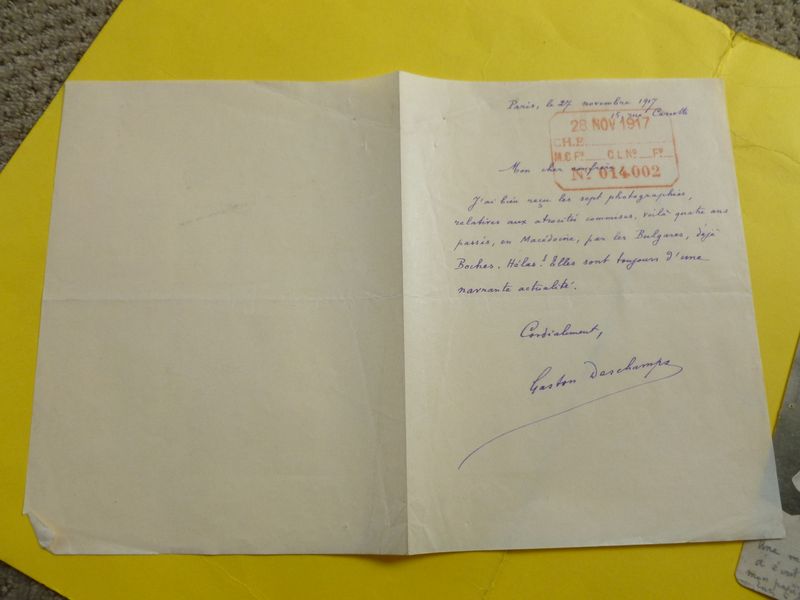 Paris, le 27 novembre 1917
15, rue
28 NOV 1917
CH.E.
M.C Fº C L Nº Fº
Nº 014.002
Mon cher confrère
J'ai bien reçu les sept photographies,
relatives aux atrocités commises, voilà quatre ans
passés, en Macédoine, par les Bulgares, déjà
Boches. Hélas! Elles sont toujours d'une
navrante actualité.
Cordialement,
Gaston Deschamps